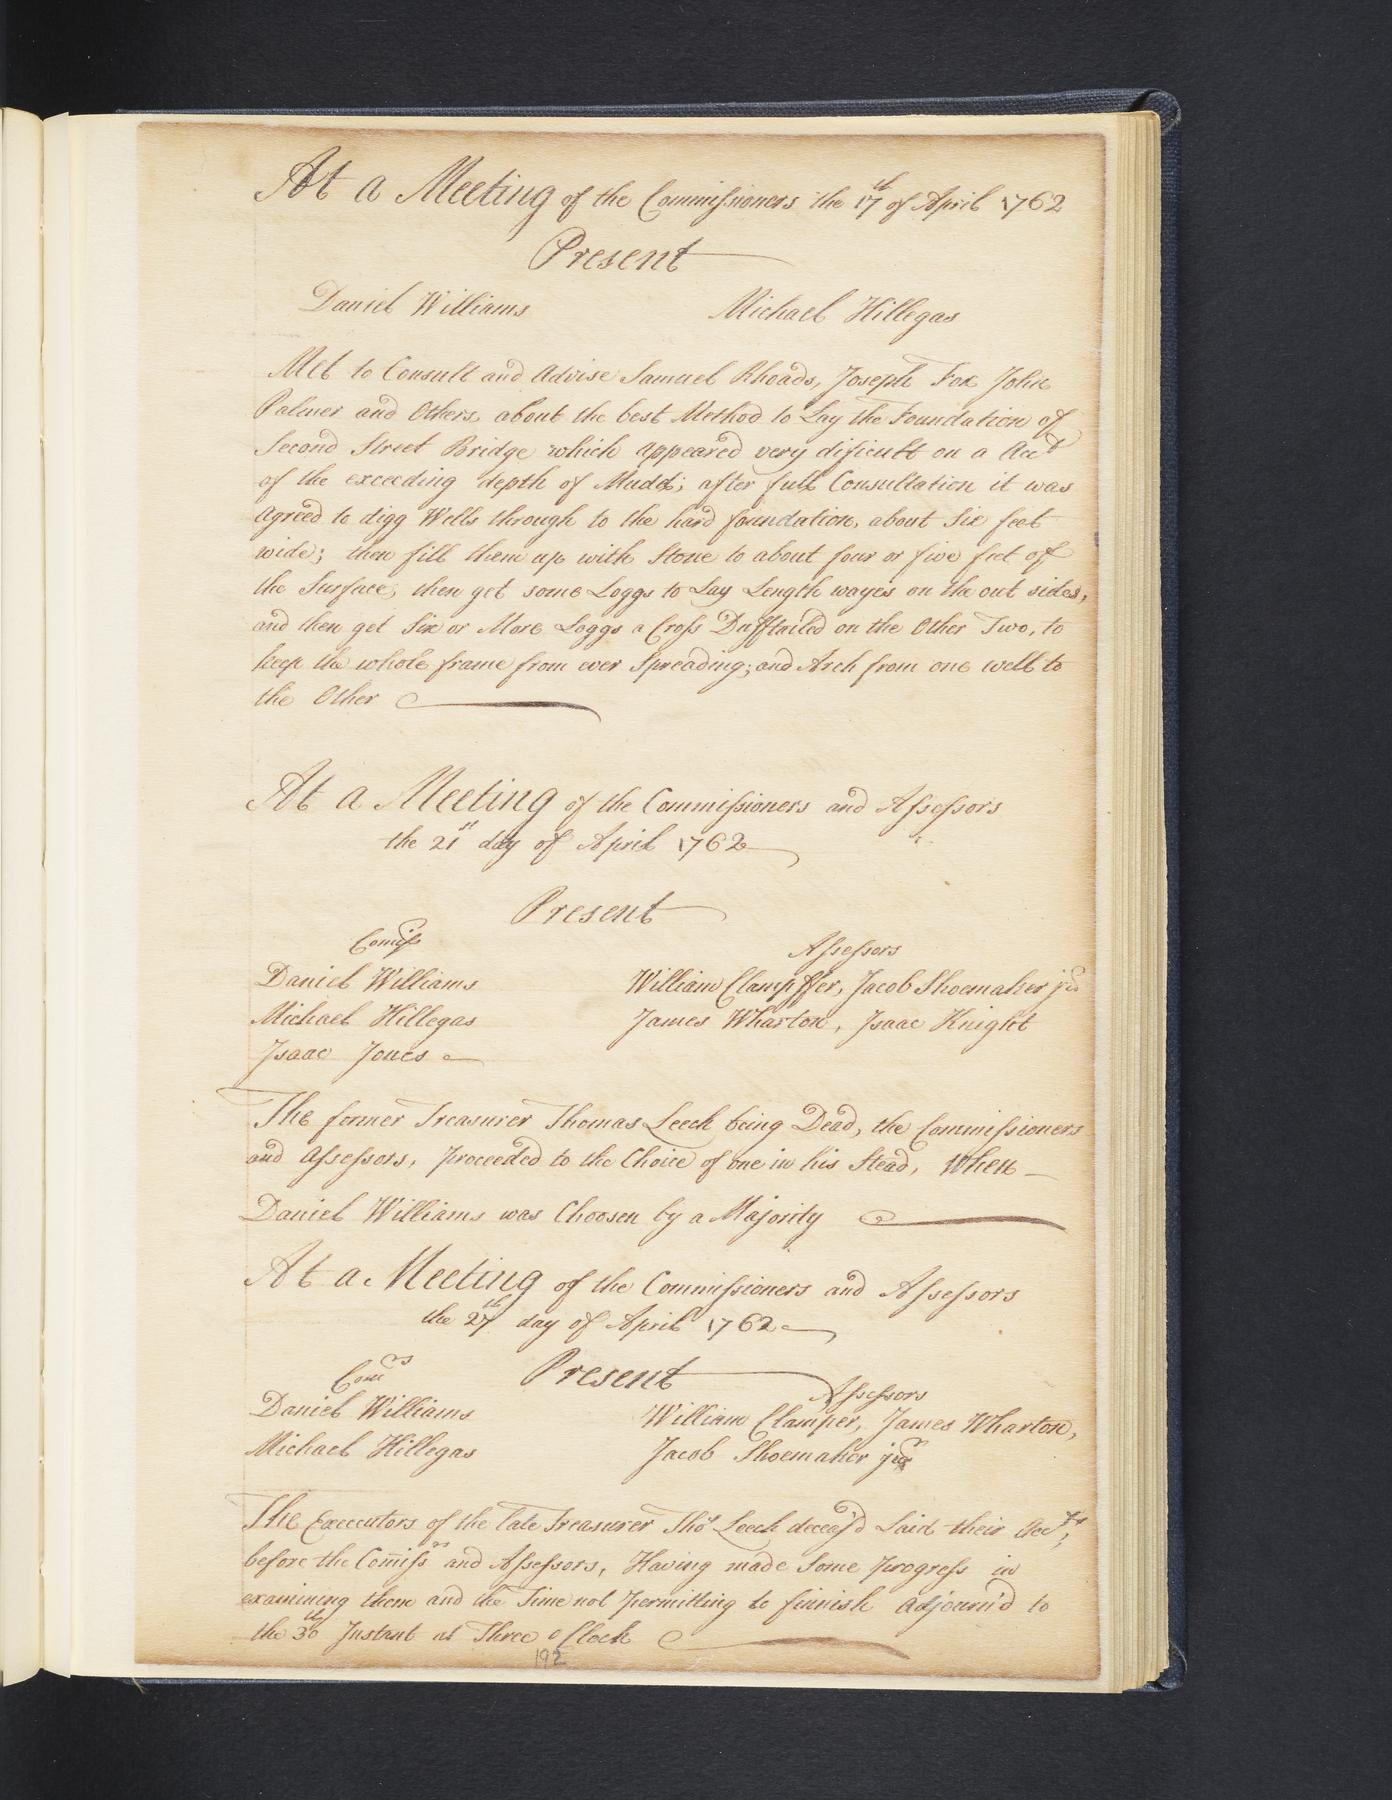 At a Meeting of the Commissioners the 17th of April 1762
Present
Daniel Williams Michael Hillegas
Met to Consult and Advise Samuel Rhoads, Joseph Fox John
Palmer and Others about the best Method to Lay the Foundation of
Second Street Bridge which appeared very dificult on a Acct
of the exceeding depth of Mudd; after full Consultation it was
agreed to digg Wells through to the hard foundation, about Six feet
wide; then fill them up with Stone to about four or five feet of
the Surface, then get some Loggs to Lay Length wayes on the out sides,
and then get Six or More Loggs a Cross Dufftailed on the Other Two, to
keep the whole frame from ever Spreading; and Arch from one well to
the Other
At a Meeting of the Commissioners and Assessors
the 21st day of April 1762
Present
Comiss Assessors
Daniel Williams William Clampffer, Jacob Shoemaker jr
Michael Hillegas James Wharton, Isaac Knight
Isaac Jones
The former Treasurer Thomas Leech being Dead, the Commissioners
and Assessors, proceeded to the Choice of one in his Stead, When
Daniel Williams was Choosen by a Majority
At a Meeting of the Commissioners and Assessors
the 27th day of April 1762
Comrs Present Assessors
Daniel Williams William Clamper, James Wharton,
Michael Hillegas Jacob Shoemaker junr
The Executors of the late Treasurer Thos Leech deceas'd Laid their Accts,
before the Comissrs and Assessors, Having made Some progress in
examining them and the Time not permitting to finnish adjourn'd to
the 30th Instant at Three o Clock
192